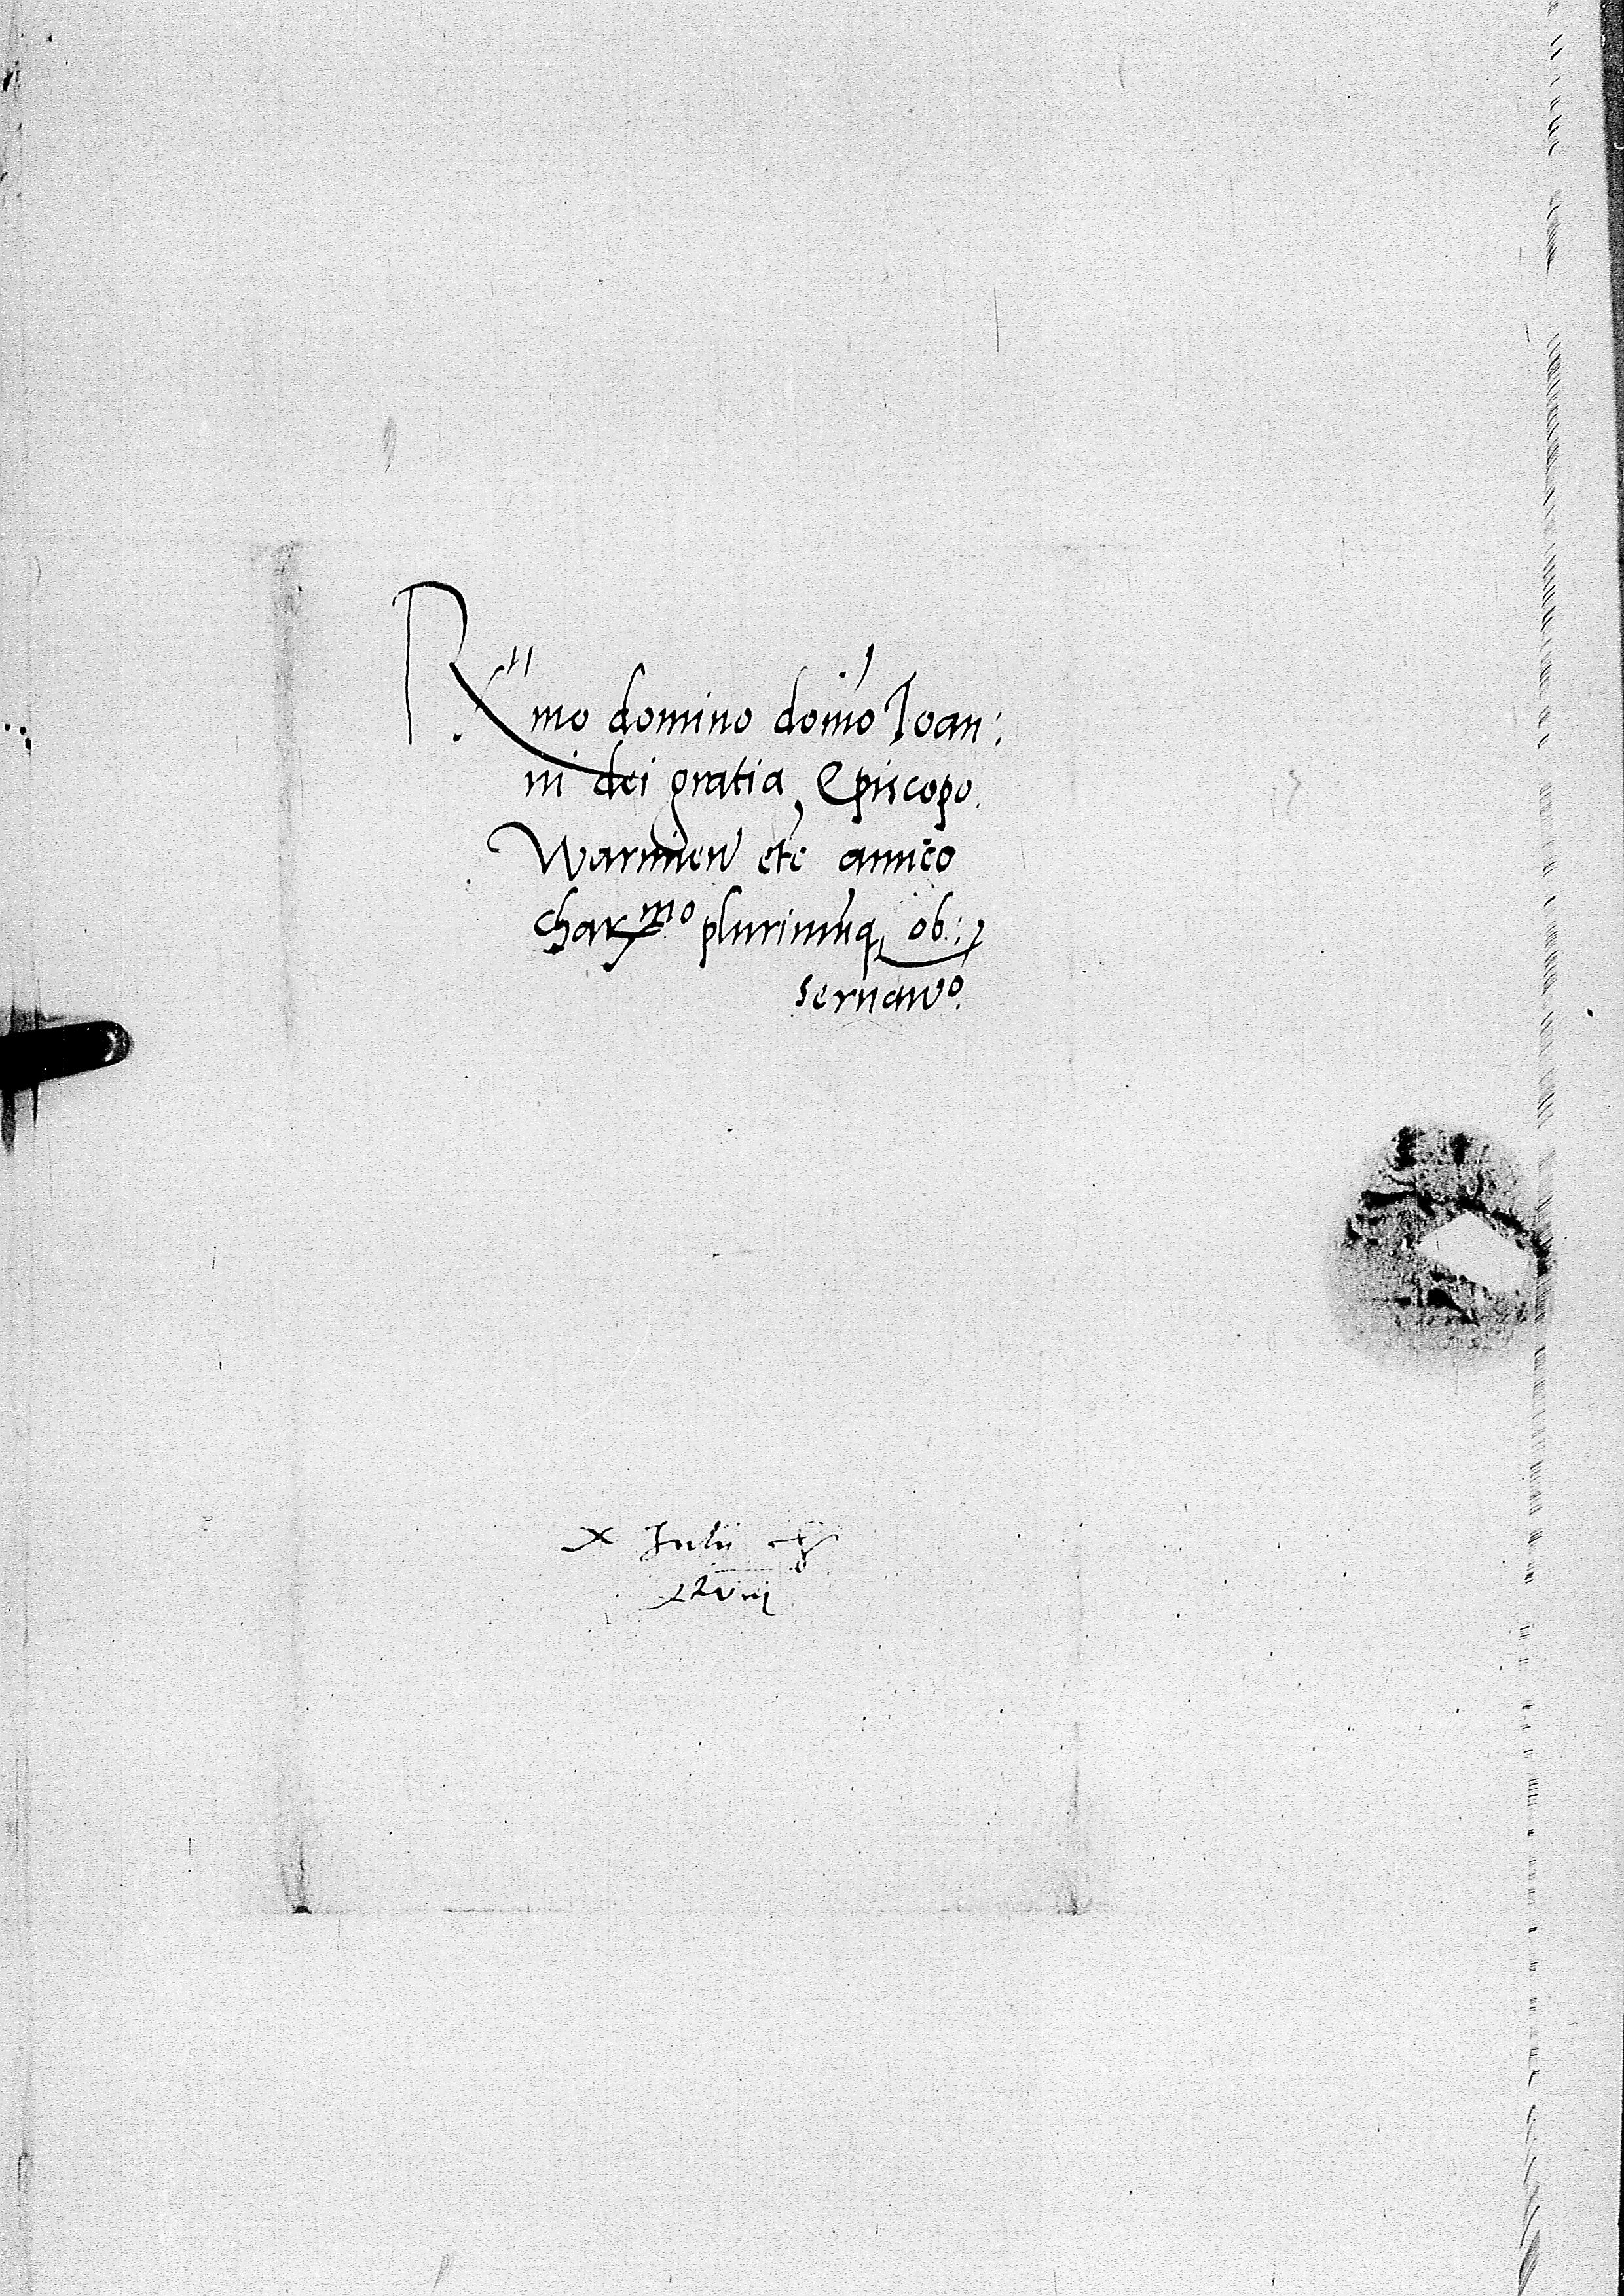 R mo domino domo Ioan:
ni dei gratia Episcopo
Warmien etc amico
charmo plurimuq ob:
seruano.
X Julii